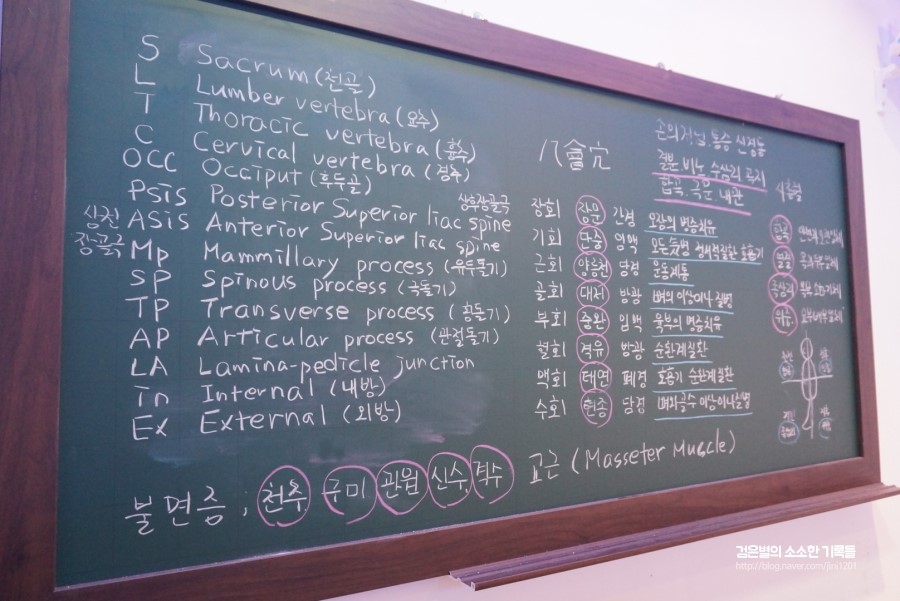 S Sacrum (천골)
L Lumber vertebra (요추)
T Thoracic vertebra (흉추)
C Cervical vertebra (경추)
OCC Occiput (후두골)
Psis Posterior Superior liac spine 상후장골극
심전 ASis Anterior Superior liac spine
장골극 Mp Mammillary process (유두돌기)
SP Spinous process (극돌기)
TP Transverse process (횡돌기)
AP Articular process (관절돌기)
LA Lamina-pedicle junction
in Internal (내방)
Ex External (외방)
불면증 ; 천추 구미 관원 신수 격수
교근 (Masseter Muscle)
八會穴
장회 장문 간경 오장의 병증치유
기회 단중 임맥 모든 기병 호흡기
근회 양릉천 담경 운동계통
골회 대저 방광 뼈의 이상이나 질병
부회 중완 임맥 육부의 병증치유
혈회 격유 방광 순환계질환
맥회 태연 폐경 호흡기 순환계질환
수회 현종 담경 뼈와골수 이상이나질병
통증 진정등
수삼리
합곡. 극문. 내관
사총혈
합곡
열결
족삼리
위중
검은별의 소소한 기록들
http://blog.naver.com/jini1201